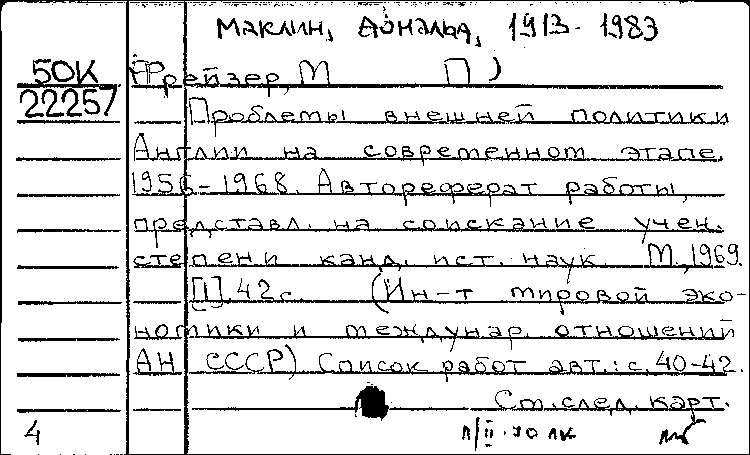 Маклин, Дональд, 1913-1983
50К
22257
Фрейзер, М П)
Проблемы внешней политики
Англии на современном этапе.
1956-1968. Автореферат работы,
представл. на соискание учен.
степени канд. ист. наук. М., 1969.
[1], 42 с. (Ин-т мировой эко-
номики и междунар. отношений
АН СССР) Список работ авт.: с. 40-42.
См. след. карт.
4